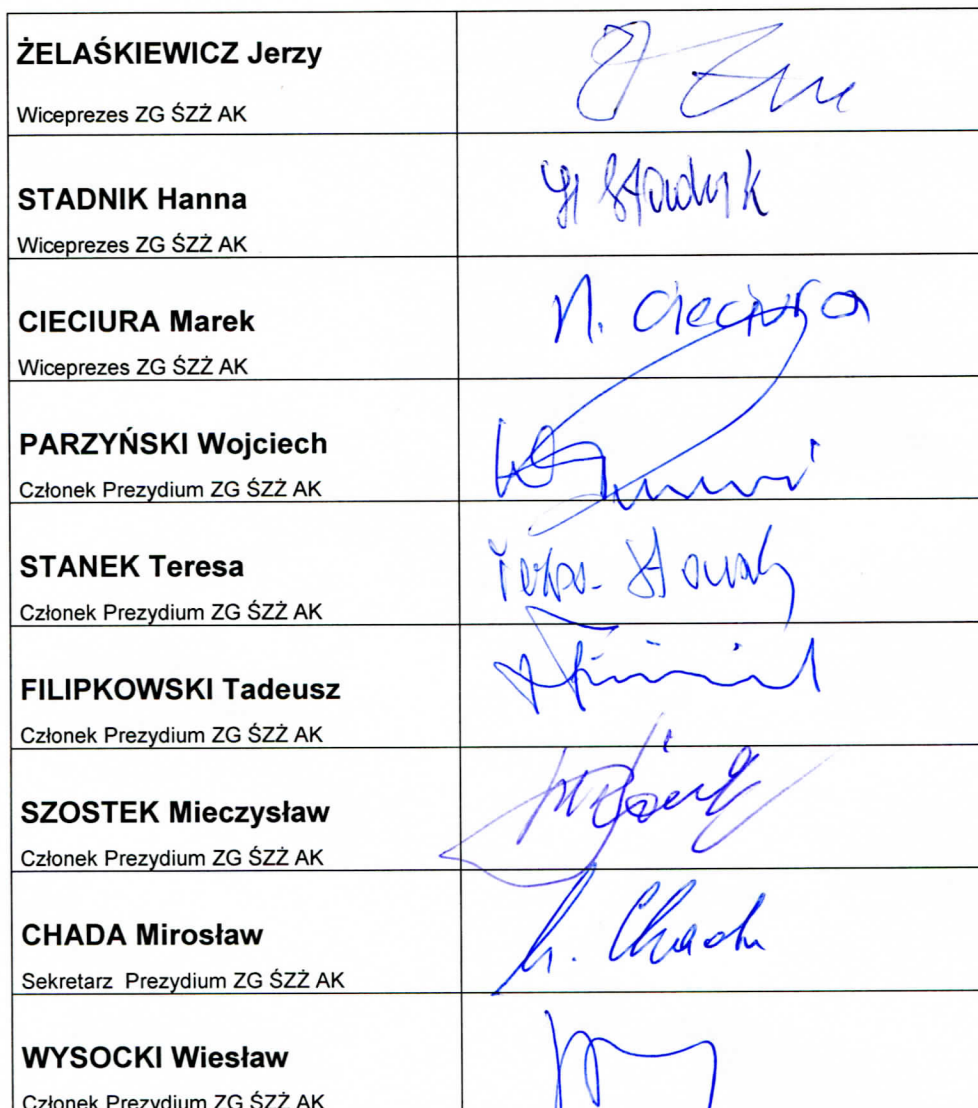 ŻELAŚKIEWICZ Jerzy
Wiceprezes ZG ŚZŻ AK
STADNIK Hanna
H Stadnik
Wiceprezes ZG ŚZŻ AK
CIECIURA Marek
M. Cieciura
Wiceprezes ZG ŚZŻ AK
PARZYŃSKI Wojciech
Członek Prezydium ZG ŚZŻ AK
STANEK Teresa
Członek Prezydium ZG ŚZŻ AK
FILIPKOWSKI Tadeusz
Członek Prezydium ZG ŚZŻ AK
SZOSTEK Mieczysław
Członek Prezydium ZG ŚZŻ AK
CHADA Mirosław
M. Chada
Sekretarz Prezydium ZG ŚZŻ AK
WYSOCKI Wiesław
Członek Prezydium ZG ŚZŻ AK